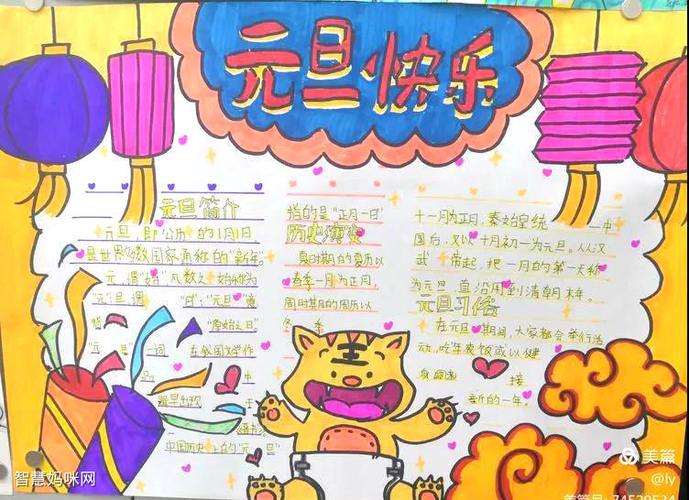 元旦快乐
元旦简介
元旦,即公历的1月1日
是世界多数国家通称的"新年"
元,谓"始",凡数之始称为
"元";旦,谓"日";"元旦"意
"原始之日"
"元旦"一词
最早出现于
中国历史上的"元旦"
指的是"正月一日"
历史演变
夏时期的夏历以
春季一月为正月,
周时期的周历以
冬季
十一月为正月,秦始皇统一中
国后,又以十月初一为元旦。从汉
武帝起,把一月的第一天称
为元旦,直沿用到清朝末年。
元旦习俗
在元旦期间,大家都会举行活
动,吃年夜饭或以健
接
新的一年。
智慧妈咪网
美篇
@ly
美篇号:74529534